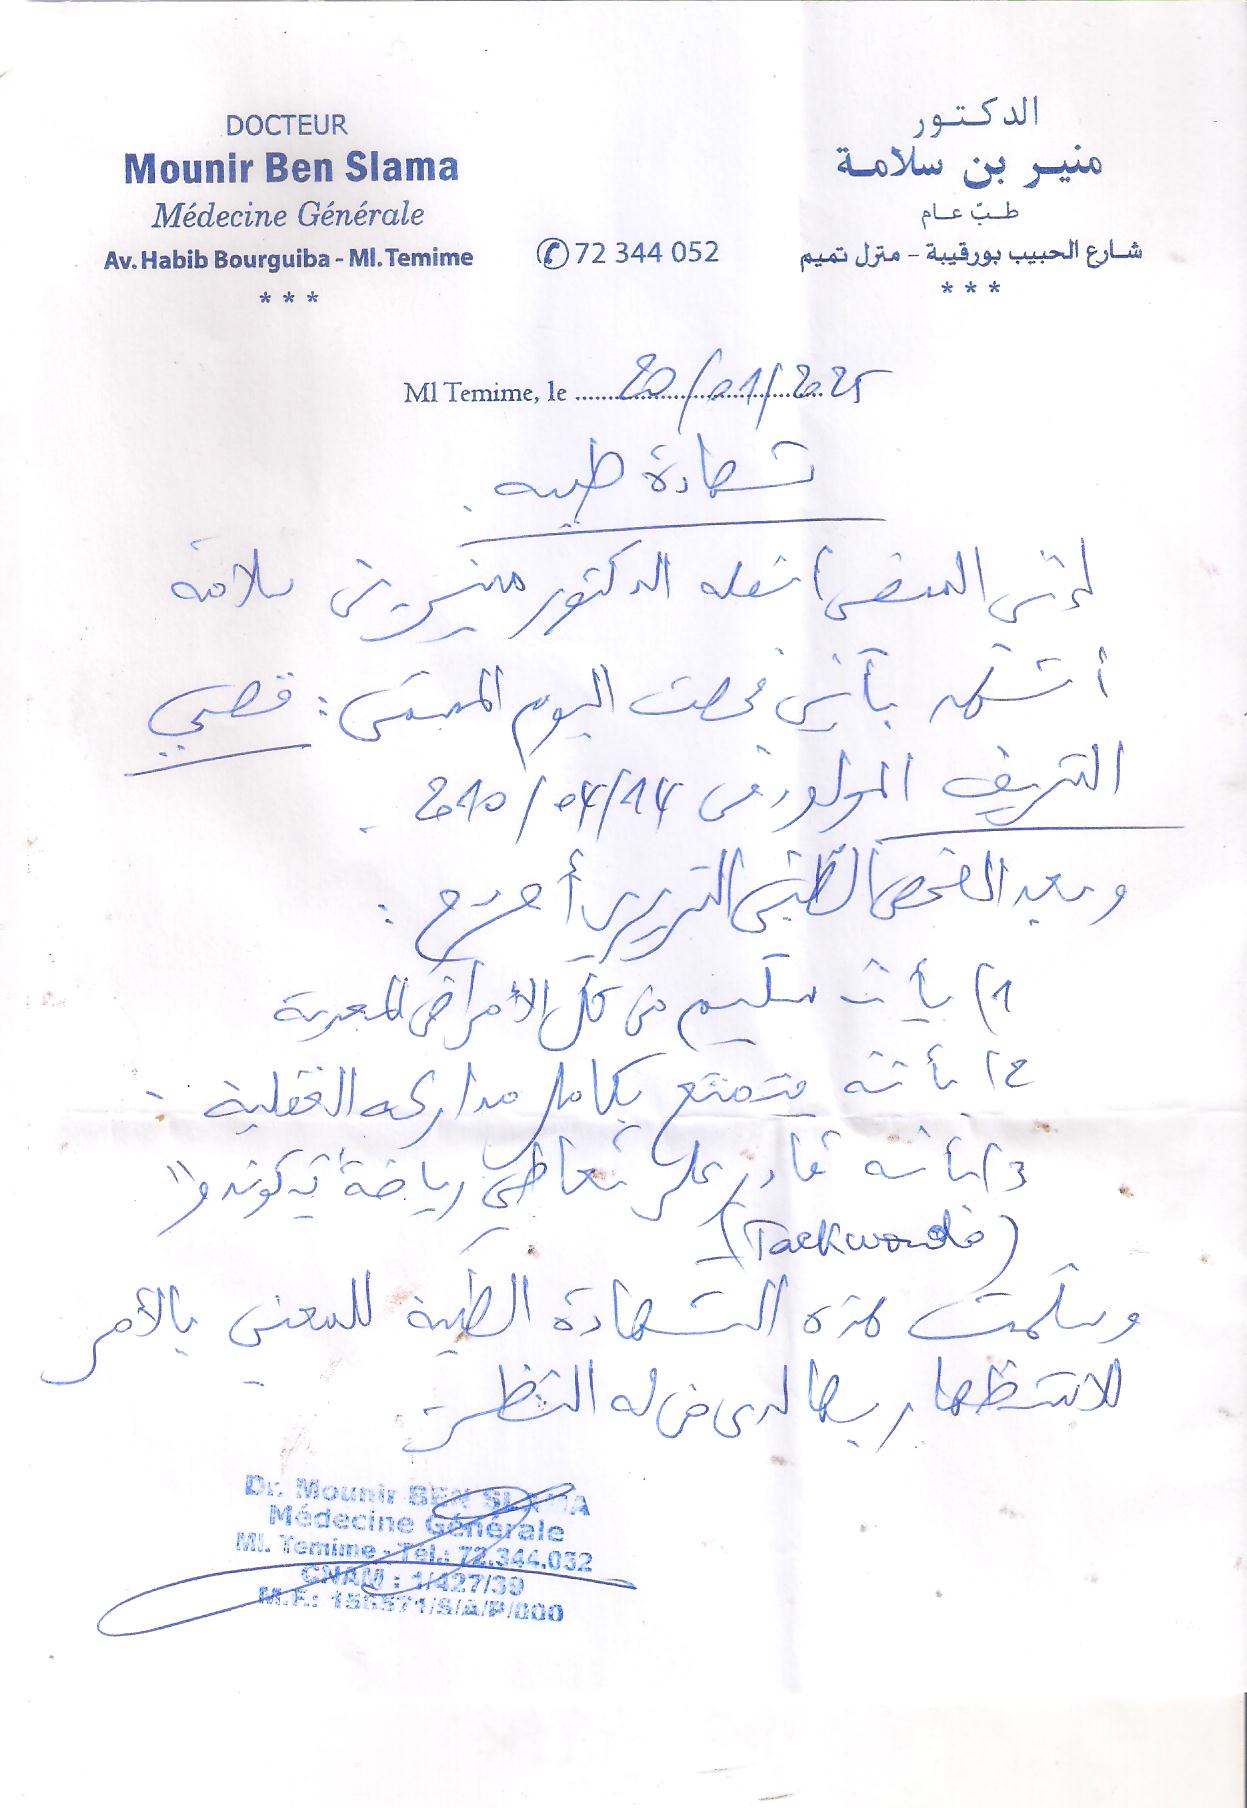 DOCTEUR
Mounir Ben Slama
Médecine Générale
Av. Habib Bourguiba - Ml. Temime
* * *
72 344 052
الدكتور
منير بن سلامة
طب عام
شارع الحبيب بورقيبة - منزل تميم
* * *
Ml Temime, le 20/01/2025
شهادة طبية
إني الممضي أسفله الدكتور منير بن سلامة
أشهد بأني فحصت اليوم المسمى : قصي
الشريف المولود في 2010/04/14
وبعد الفحص الطبي السريري أصرح :
1) بأنه سليم من كل الأمراض المعدية
2) بأنه يتمتع بكامل مداركه العقلية
3) بأنه قادر على تعاطي رياضة "تيكوندو"
(Taekwondo)
وسلمت هذه الشهادة الطبية للمعني بالأمر
للاستظهار بها لدى من له النظر
Dr. Mounir BEN SLAMA
Médecine Générale
Ml. Temime - Tél.: 72.344.052
CNAM : 1/427/39
M.F.: /S/A/P/000